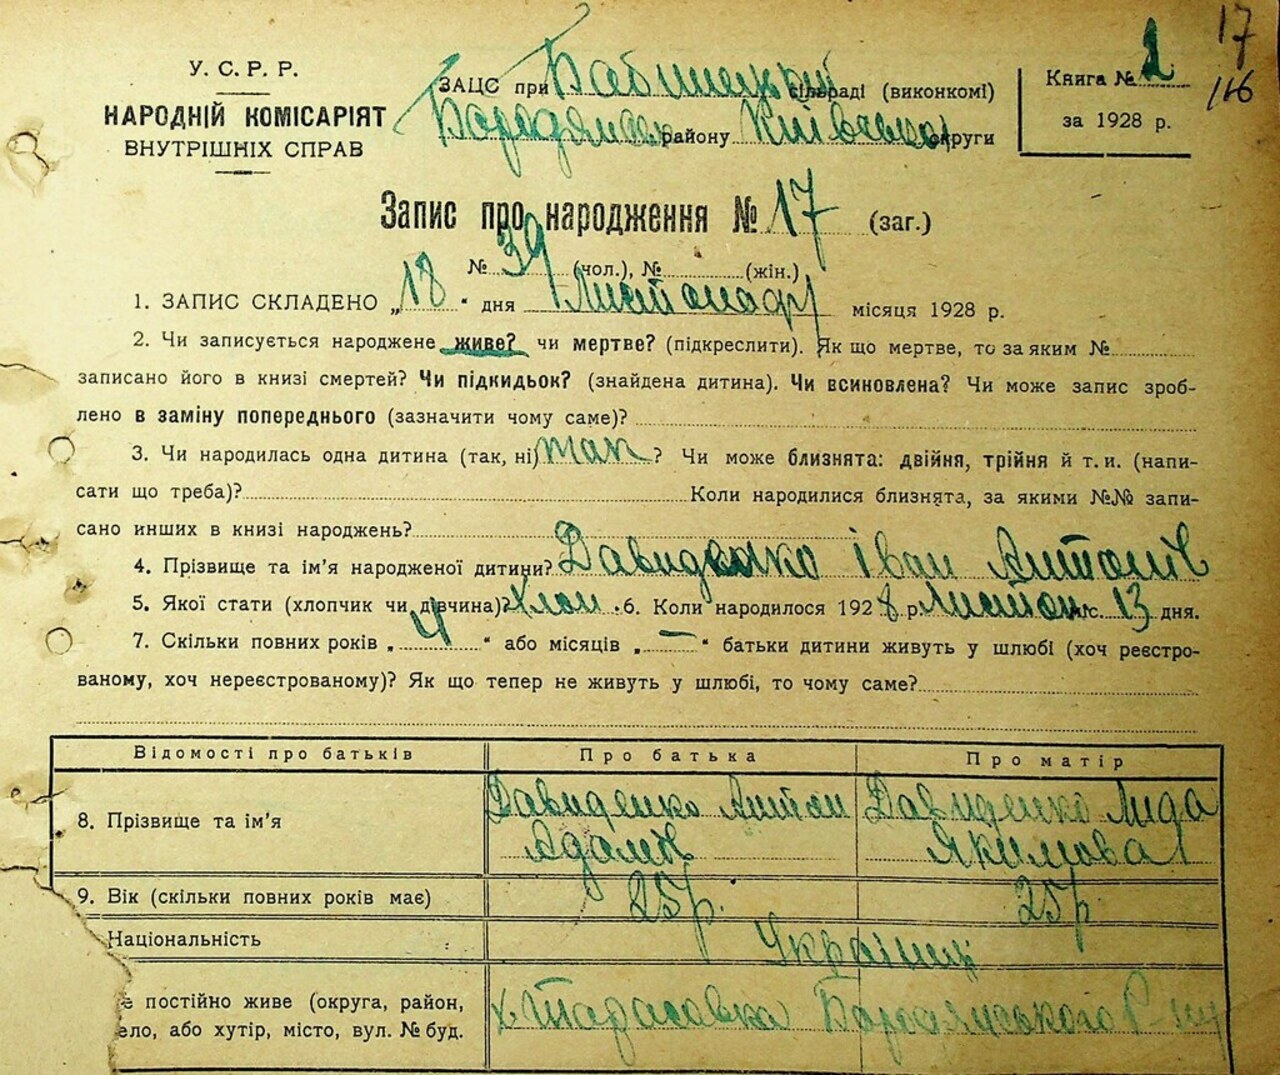 17
116
У. С. Р. Р.
НАРОДНІЙ КОМІСАРІЯТ
ВНУТРІШНІХ СПРАВ
ЗАЦС при Бабинецькій сільраді (виконкомі)
Бородянськ району Київської округи
Книга № 2
за 1928 р.
Запис про народження № 17 (заг.)
№ 39 (чол.), № (жін.)
1. ЗАПИС СКЛАДЕНО „18“ дня Листопаду місяця 1928 р.
2. Чи записується народжене живе? чи мертве? (підкреслити). Як що мертве, то за яким №
записано його в книзі смертей? Чи підкидьок? (знайдена дитина). Чи всиновлена? Чи може запис зроб-
лено в заміну попереднього (зазначити чому саме)?
3. Чи народилась одна дитина (так, ні) так? Чи може близнята: двійня, трійня й т. и. (напи-
сати що треба)? Коли народилися близнята, за якими №№ запи-
сано инших в книзі народжень?
4. Прізвище та ім'я народженої дитини? Давиденко Іван Антонів
5. Якої стати (хлопчик чи дівчина)? хлоп. 6. Коли народилося 1928 р. Листоп. міс. 13 дня.
7. Скільки повних років „4“ або місяців „—“ батьки дитини живуть у шлюбі (хоч реєстро-
ваному, хоч нереєстрованому)? Як що тепер не живуть у шлюбі, то чому саме?
Відомості про батьків Про батька Про матір
8. Прізвище та ім'я Давиденко Антон Давиденко Лида
Адамів Якимова
9. Вік (скільки повних років має) 25 р. 25 р.
Національність Українці
е постійно живе (округа, район, х. Тарасовка Бородянського р-ну
ело, або хутір, місто, вул. № буд.